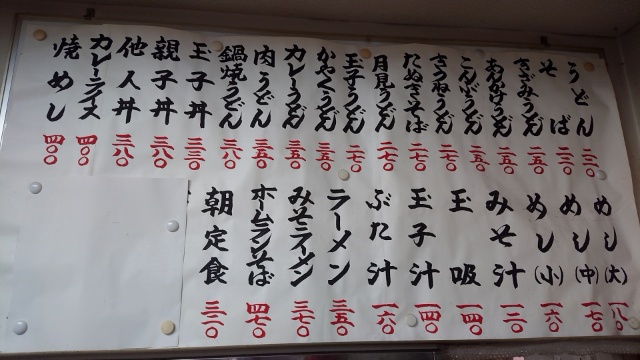 うどん 二二〇
そば 二二〇
きざみうどん 二五〇
あんかけうどん 二五〇
こんぶうどん 二五〇
きつねうどん 二七〇
たぬきそば 二七〇
月見うどん 二七〇
玉子うどん 二七〇
かやくうどん 三五〇
カレーうどん 三五〇
肉うどん 三五〇
鍋焼うどん 三八〇
玉子丼 三三〇
親子丼 三八〇
他人丼 三八〇
カレーライス 四〇〇
焼めし 四〇〇
めし(大) 一八〇
めし(中) 一七〇
めし(小) 一六〇
みそ汁 一二〇
玉吸 一四〇
玉子汁 一四〇
ぶた汁 一六〇
ラーメン 三五〇
みそラーメン 三七〇
ホームランそば 四七〇
朝定食 三二〇